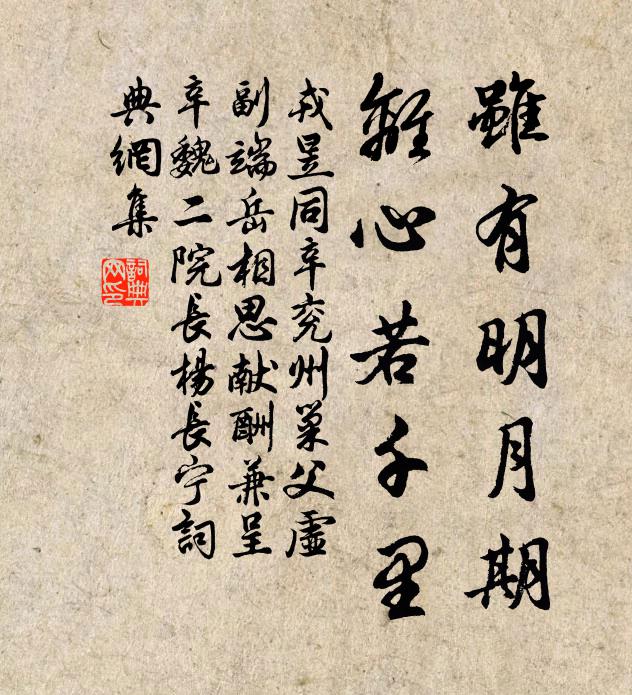 雖有明月期
離心若千里
戎昱同辛兖州巢父虛
副端岳相思献酬兼呈
辛魏二院長楊長宁詞
典網集
詞典
网印